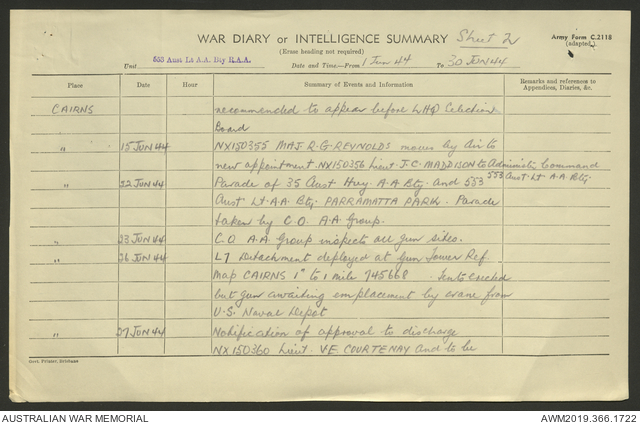 WAR DIARY or INTELLIGENCE SUMMARY Sheet 2
Army Form C.2118
(Erase heading not required)
(adapted.)
Unit 553 Aust Lt A.A. Bty R.A.A. Date and Time—From 1 Jun 44 To 30 JUN 44
Place Date Hour Summary of Events and Information Remarks and references to Appendices, Diaries, &c.
CAIRNS recommended to appear before LHQ Selection
Board
" 15 JUN 44 NX150355 MAJ. R.G. REYNOLDS moves by Air to
new appointment. NX150356 Lieut. J.C. MADDISON to Administer Command
553 Aust. Lt. A.A. Bty.
" 22 JUN 44 Parade of 35 Aust Hvy. A.A Bty. and 553
Aust Lt. AA. Bty. PARRAMATTA PARK. Parade
taken by C.O. A.A. Group.
" 23 JUN 44 C.O A.A. Group inspects all gun sites.
" 26 JUN 44 L7 Detachment deployed at Gun Tower Ref.
Map CAIRNS 1" to 1 mile 745668. Tents erected
but gun awaiting emplacement by crane from
U.S. Naval Depot
" 27 JUN 44 Notification of approval to discharge
NX150360 Lieut. V.E. COURTENAY and to be
Govt. Printer, Brisbane
AUSTRALIAN WAR MEMORIAL AWM2019.366.1722